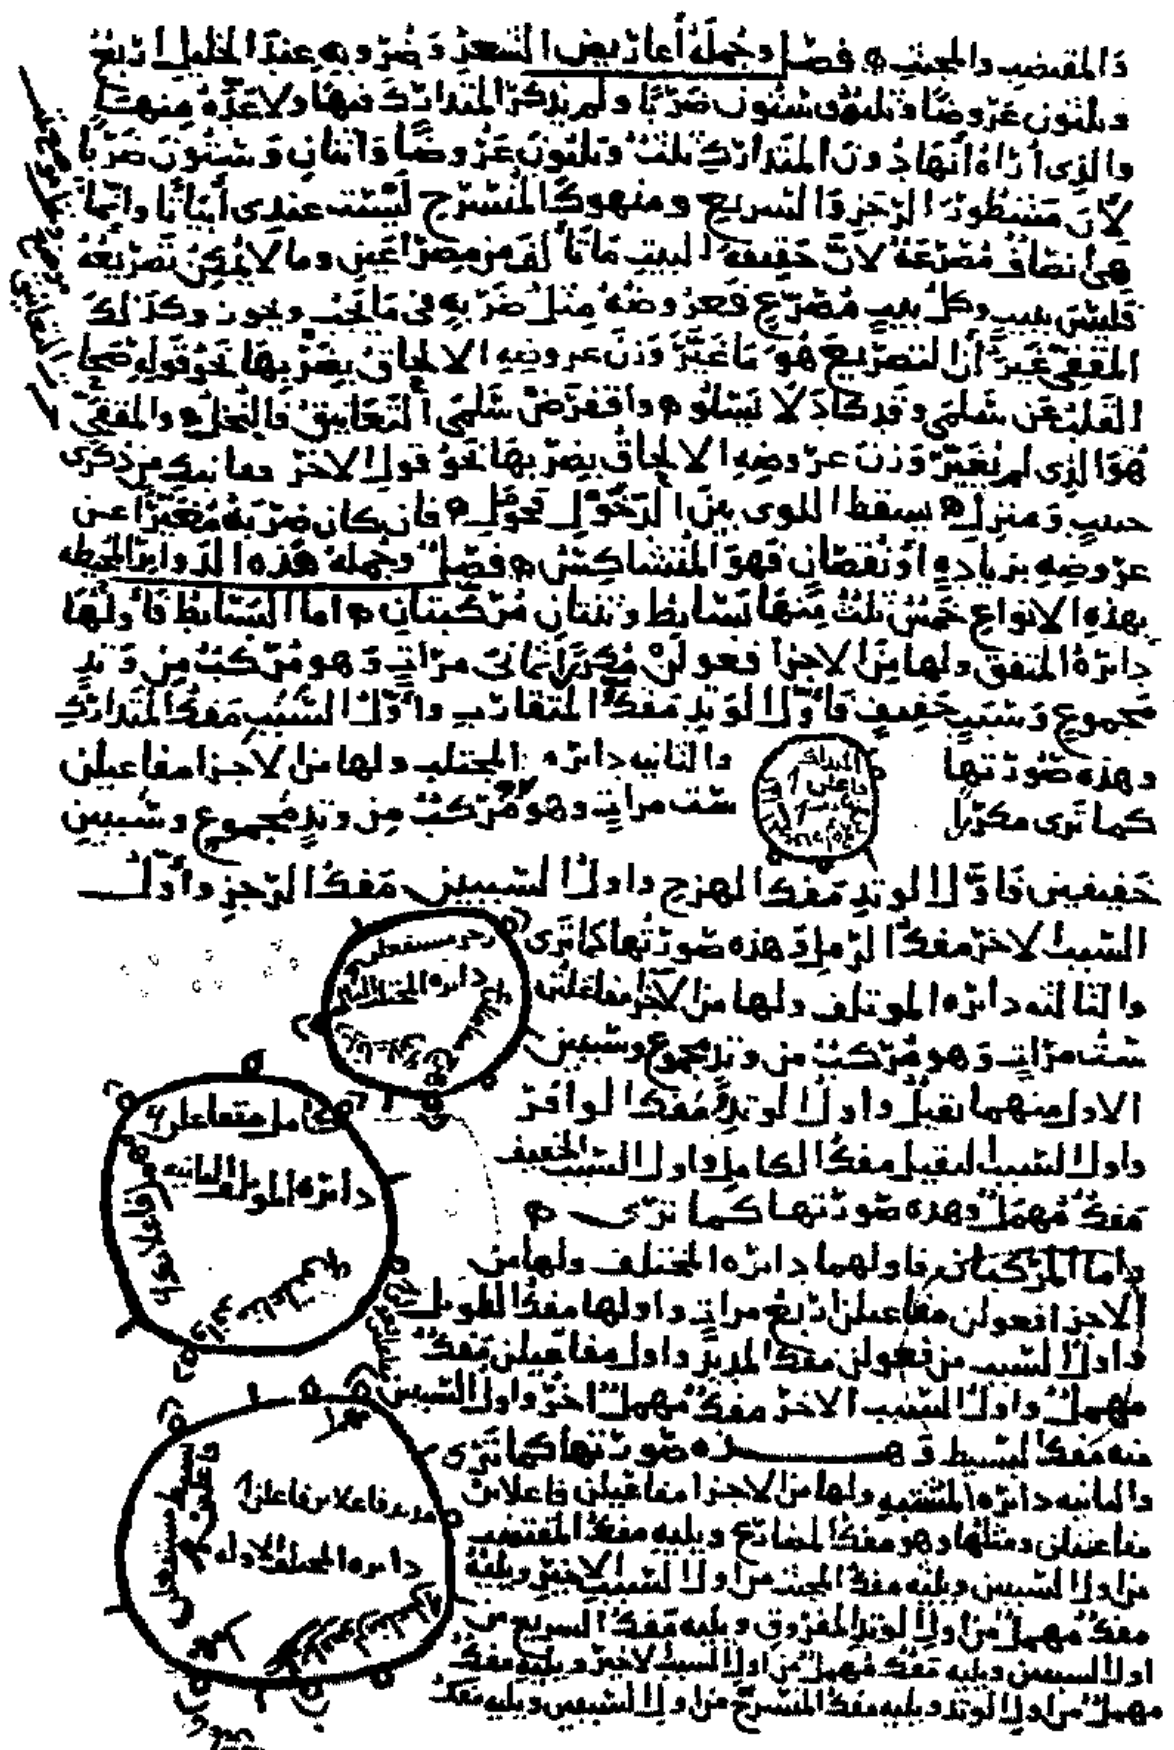 والمقتضب والمجتث فصل وجملة أعاريض الشعر وضروبه عند الخليل أربع
وثلثون عروضا وثلثة وستون ضربا ولم يذكر المتدارك فيها ولا عده منها
والذي أراه أنها دون المتدارك ثلث وثلثون عروضا واثنان وستون ضربا
لأن مشطور الرجز والسريع ومنهوك المنسرح ليست عندي أبياتا وإنما
هي أنصاف مصرعة لأن حقيقة البيت ما تألف من مصراعين وما لا يمكن تصريعه
فليس ببيت وكل بيت مصرع فعروضه مثل ضربه في ما يجب ويجوز وكذلك
المقفى غير أن التصريع هو ما غير وزن عروضه الالحاق بضربها نحو قوله صحا
القلب عن سلمى وقد كاد لا يسلو وأقفر من سلمى التعانيق فالثجل والمقفى
هو الذي لم يغير وزن عروضه الالحاق بضربها نحو قول الاخر قفا نبك من ذكرى
حبيب ومنزل بسقط اللوى بين الدخول فحومل فان كان ضربه مغيرا عن
عروضه بزيادة أو نقصان فهو المتشاكس فصل وجملة هذه الدوائر المحيطة
بهذه الانواع خمس ثلث منها بسائط وثنتان مركبتان اما البسائط فأولها
دائرة المتفق ولها من الاجزا فعولن مكررا ثماني مرات وهو مركب من وتد
مجموع وسبب خفيف فأول الوتد مفك المتقارب وأول السبب مفك المتدارك
وهذه صورتها والثانيه دائره المجتلب ولها من الاجزا مفاعيلن
كما ترى مكررا ست مرات وهو مركب من وتد مجموع وسببين
خفيفين فأول الوتد مفك الهزج واول السببين مفك الرجز وأول
السبب الاخر مفك الرمل وهذه صورتها كما ترى
والثالثه دائره الموتلف ولها من الاجزا مفاعلتن
ست مرات وهو مركب من وتد مجموع وسببين
الاول منهما ثقيل واول الوتد مفك الوافر
واول السبب الثقيل مفك الكامل واول السبب الخفيف
مفك مهمل وهذه صورتها كما ترى
واما المركبتان فاولهما دائره المختلف ولها من
الاجزا فعولن مفاعيلن اربع مرات واولها مفك الطويل
واول السبب من فعولن مفك المديد واول مفاعيلن مفك
مهمل واول السبب الاخر مفك مهمل اخر واول السببين
منه مفك البسيط وهذه صورتها كما ترى
والثانيه دائره المشتبه ولها من الاجزا مفاعيلن فاعلاتن
مفاعيلن ومثلها وهو مفك المضارع ويليه مفك المقتضب
من اول السببين ويليه مفك المجتث من اول السبب الاخير ويليه
مفك مهمل من اول الوتد المفروق ويليه مفك السريع من
اول السببين ويليه مفك مهمل من اول السبب الاخير ويليه مفك
مهمل من اول الوتد ويليه مفك المنسرح من اول السببين ويليه مفك
رجز مستفعلن
دائره المجتلب
كامل متفاعلن
دائره الموتلف الثانيه
مهمل
مديد فاعلاتن فاعلن
دائره المختلف الاوله
بسيط مستفعلن فاعلن